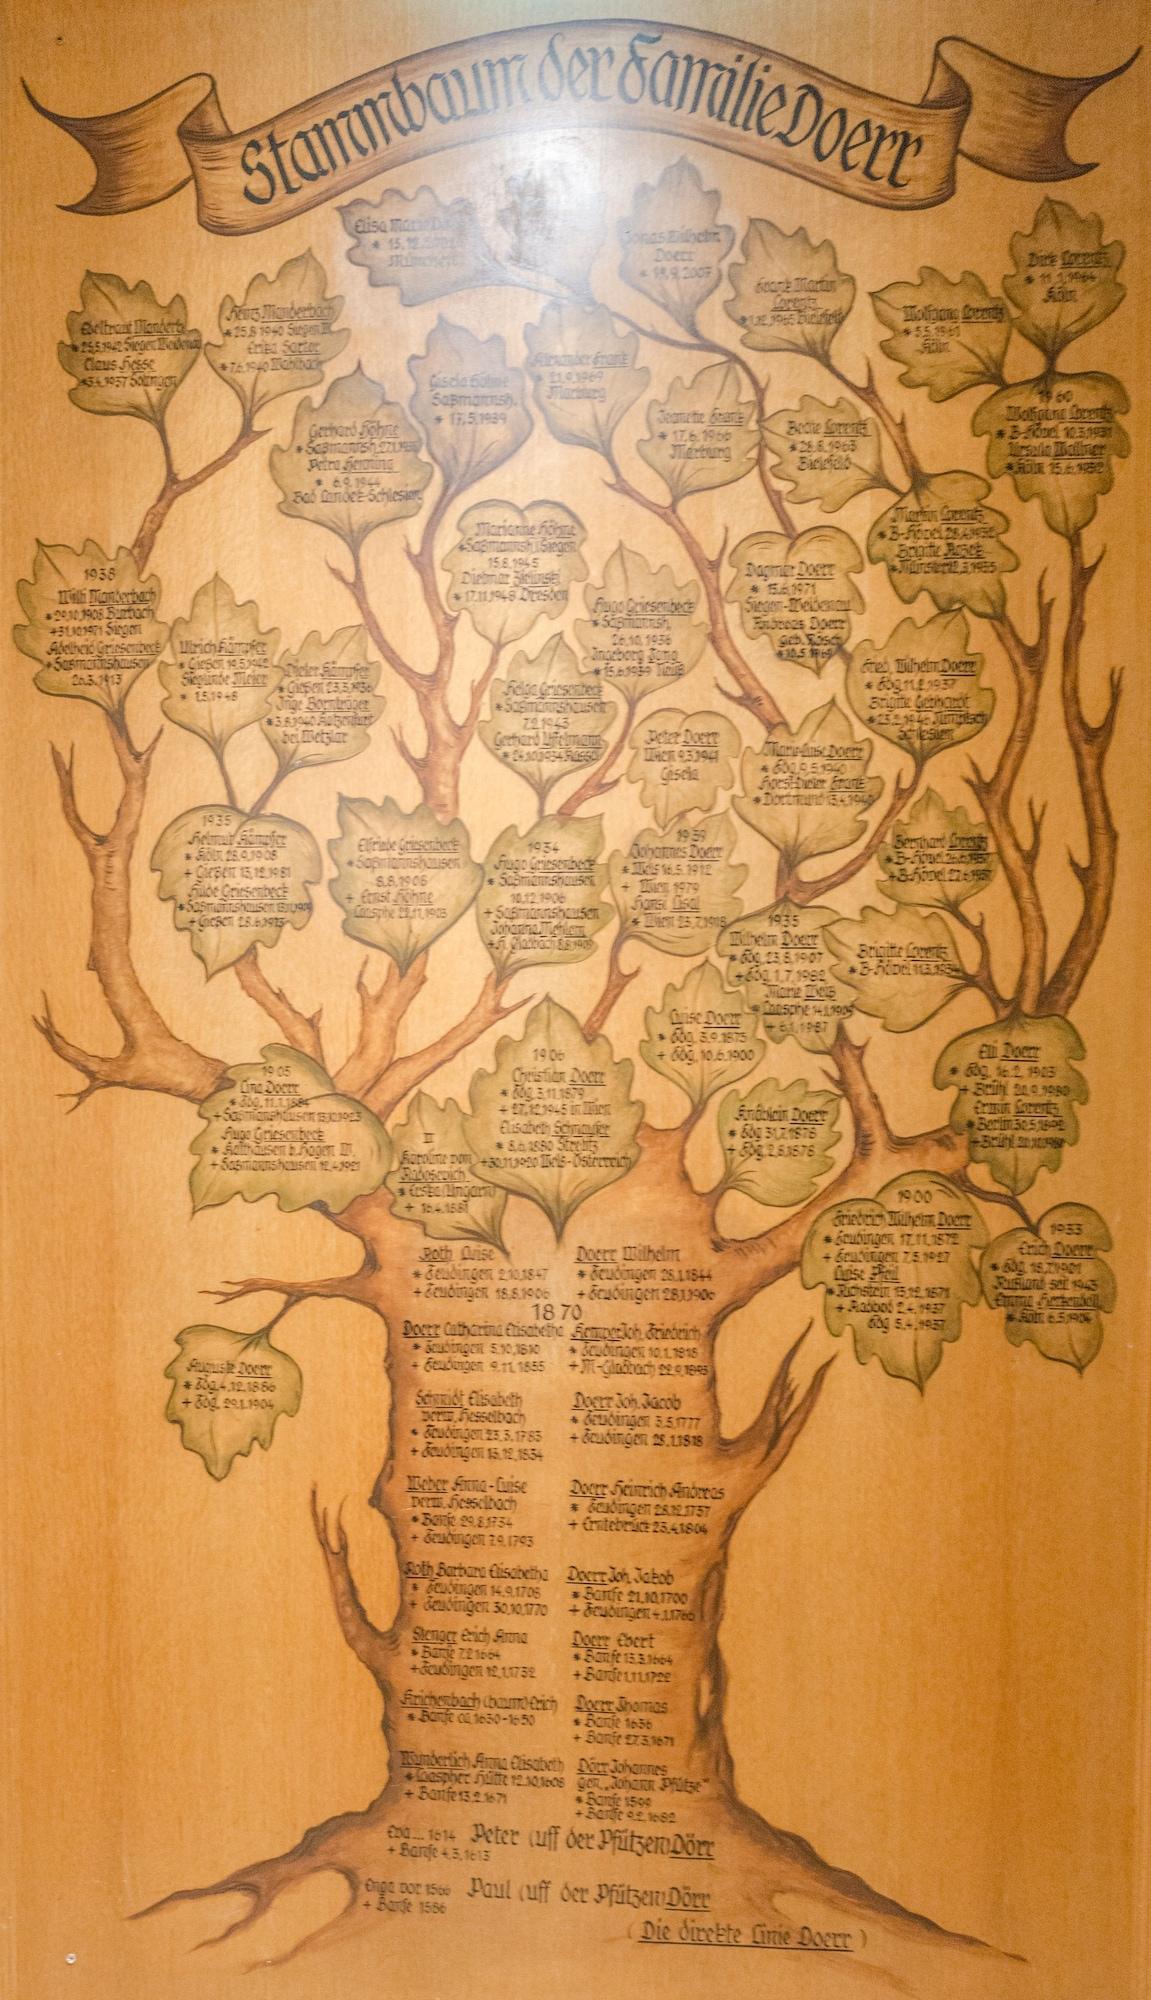 Stammbaum der Familie Doerr
Elisa Marie
* 15.12.
München
Jonas Wilhelm
Doerr
* 19.9.2007
Frank Martin
Lorentz
*1.12.1965 Bielefeld
Wolfgang Lorentz
* 5.5.1961
Köln
Dirk Lorentz
* 11.1.1964
Köln
Edeltraut Manderb.
*25.5.1942 Siegen Weidenau
Claus Hesse
*5.4.1937 Solingen
Heinz Manderbach
*25.8.1940 Siegen W.
Erika Sartor
*7.6.1940 Wahlbach
Gerhard Höhne
* Saßmannsh.
Petra Henning
* 6.9.1944
Bad Landek-Schlesien
Gisela Höhne
Saßmannsh.
* 17.5.1939
Alexander Frank
* 21.9.1969
Marburg
Jeanette Frank
* 17.6.1966
Marburg
Bodie Lorentz
*28.8.1963
Bielefeld
1960
Wolfgang Lorentz
* B-Hövel 10.3.1931
Ursula Wallner
*Köln 15.6.1932
Martin Lorentz
* B-Hövel 28.4.1932
Brigitte
*Münster 12.3.1935
Marianne Höhne
*Saßmannsh./Siegen
15.8.1945
Dietmar Zielinski
* 17.11.1948 Dresden
Dagmar Doerr
* 15.6.1971
Siegen-Weidenau
Andreas Doerr
geb. Rösch
*10.5.1969
1938
Willi Manderbach
*29.10.1908 Burbach
+31.10.1971 Siegen
Adelheid Griesenbeck
* Saßmannshausen
26.3.1913
Ulrich Kämpfer
* Gießen 19.5.1942
Sieglinde Meier
* 1.5.1948
Dieter Kämpfer
* Gießen 23.3.1936
Inge Bornträger
* 3.8.1940 Katzenfurt
bei Wetzlar
Hugo Griesenbeck
* Saßmannsh.
26.10.1936
Ingeborg Jung
* 15.6.1939 Neuß
Helga Griesenbeck
* Saßmannshausen
7.2.1943
Gerhard Uffelmann
* 24.10.1934 Kassel
Peter Doerr
Wien 9.3.1941
Gisela
Marie-Luise Doerr
* Fdg. 9.5.1940
Horst-Dieter Frank
* Dortmund 13.4.1940
Fried. Wilhelm Doerr
* Fdg. 11.2.1937
Brigitte Gebhardt
* 23.2.1946 Jumptsch
Schlesien
1935
Helmut Kämpfer
* Köln 28.9.1908
+ Gießen 13.12.1981
Hilde Griesenbeck
* Saßmannshausen
+ Gießen 28.6.1973
Elfriede Griesenbeck
* Saßmannshausen
8.8.1908
+ Ernst Höhne
Laasphe 22.11.1903
1934
Hugo Griesenbeck
* Saßmannshausen
10.12.1906
+ Saßmannshausen
Johanna Mehlem
+ M. Gladbach 8.8.1909
1939
Johannes Doerr
* Wels 16.5.1912
+ Wien 1979
Hansi Lisal
* Wien 23.7.1918
Bernhard Lorentz
* B-Hövel 26.6.1937
+ B-Hövel 27.6.1937
1935
Wilhelm Doerr
* Fdg. 23.8.1907
+ Fdg. 1.7.1982
Marie Weiß
* Laasphe 14.1.1909
+ 6.1.1987
Brigitte Lorentz
* B-Hövel 11.3.1934
Luise Doerr
* Fdg. 3.9.1875
+ Fdg. 10.6.1900
Elli Doerr
* Fdg. 16.2.1903
+ Brühl 20.9.1980
Erwin Lorentz
* Berlin 30.5.1892
+ Brühl
1905
Lina Doerr
* Fdg. 11.1.1884
+ Saßmannshausen 13.10.1923
Hugo Griesenbeck
* Kalthausen b. Hagen W.
+ Saßmannshausen 12.4.1921
II
Karoline von
Radosevich
* Erska (Ungarn)
+ 16.4.1881
1906
Christian Doerr
* Fdg. 3.11.1879
+ 27.12.1945 in Wien
Elisabeth Schnaufer
* 8.6.1880 Strelitz
+30.11.1920 Wels-Österreich
Knäblein Doerr
* Fdg 31.7.1878
+ Fdg. 2.8.1878
1900
Friedrich Wilhelm Doerr
* Feudingen 17.11.1872
+ Feudingen 7.3.1927
Luise Pfeil
* Richstein 13.12.1871
+ Rabood 2.4.1937
Fdg 5.4.1937
1933
Erich Doerr
* Fdg. 18.7.1901
Rußland seit 1943
Emma Herkendell
* Köln 6.5.1904
Auguste Doerr
* Fdg. 4.12.1886
+ Fdg. 29.1.1904
Roth Luise
* Feudingen 2.10.1847
+ Feudingen 18.8.1906
Doerr Wilhelm
* Feudingen 28.1.1844
+ Feudingen 28.1.1906
1870
Doerr Catharina Elisabetha
* Feudingen 5.10.1810
+ Feudingen 9.11.1855
Kemper Joh. Friedrich
* Feudingen 10.1.1818
+ M-Gladbach 22.9.1893
Schmidt Elisabeth
verw. Hesselbach
* Feudingen 23.3.1783
+ Feudingen 15.12.1834
Doerr Joh. Jacob
* Feudingen 3.5.1777
+ Feudingen 28.1.1818
Weber Anna-Luise
verw. Hesselbach
* Banfe 29.8.1734
+ Feudingen 7.9.1793
Doerr Heinrich Andreas
* Feudingen 28.12.1737
+ Erntebrück 23.4.1804
Roth Barbara Elisabetha
* Feudingen 14.9.1708
+ Feudingen 30.10.1770
Doerr Joh. Jakob
* Banfe 21.10.1700
+ Feudingen 4.1.1766
Stenger Erich Anna
* Banfe 7.2.1664
+ Feudingen 12.1.1732
Doerr Ebert
* Banfe 13.3.1664
+ Banfe 1.11.1722
Krichenbach (baum) Erich
* Banfe ca. 1630-1650
Doerr Thomas
* Banfe 1636
+ Banfe 27.3.1671
Wunderlich Anna Elisabeth
* Laaspher Hütte 12.10.1608
+ Banfe 13.2.1671
Dörr Johannes
gen. „Johann Pfütze"
* Banfe 1599
+ Banfe 9.2.1682
Eva ... 1614
+ Banfe 4.3.1613
Peter (uff der Pfützen) Dörr
Enga vor 1566
+ Banfe 1586
Paul (uff der Pfützen) Dörr
( Die direkte Linie Doerr )